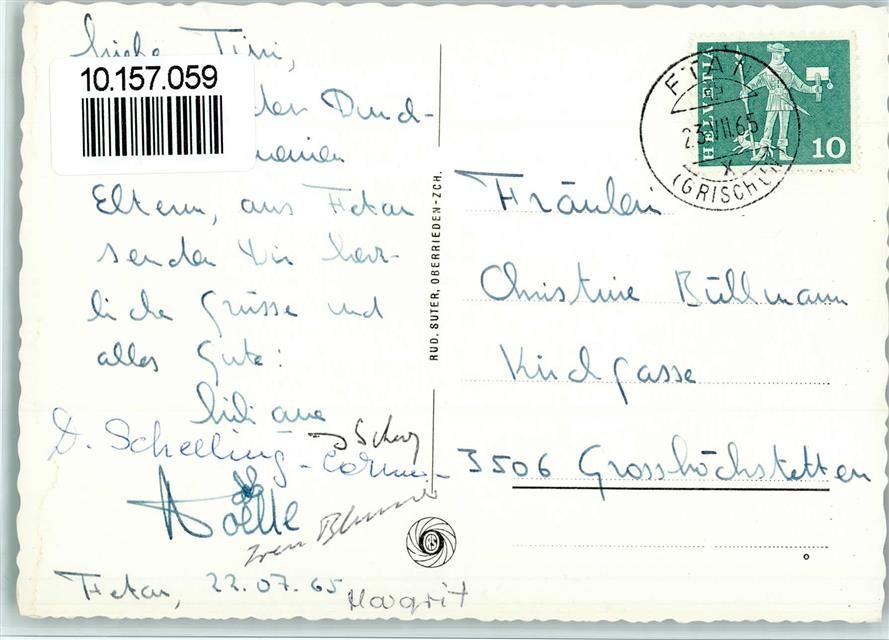 Liebe Tini,
10.157.059
den Durch-
meinen
Eltern, aus Fetan
senden Dir herz-
liche Grüsse und
alles Gute!
Liliane
D. Schelling-
Noëlle
Fetan, 22.07.65
Margrit
RUD. SUTER, OBERRIEDEN-ZCH.
HELVETIA
10
FTAN
23.VII.65
X
(GRISCHUN)
Fräulein
Christine Bühlmann
Kirchgasse
3506 Grosshöchstetten